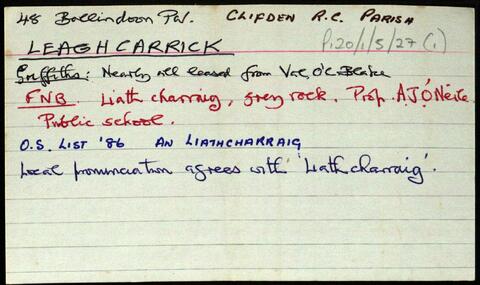 48 Ballindoon Par. CLIFDEN R.C. PARISH
P120/1/5/27 (1)
LEAGHCARRICK
Griffiths: Nearly all leased from Val. O'C. Blake
FNB. Liath charraig, grey rock. Prop. A.J. O'Neile
Public school.
O.S. LIST '86 AN LIATHCHARRAIG
Local pronunciation agrees with 'Liath charraig'.